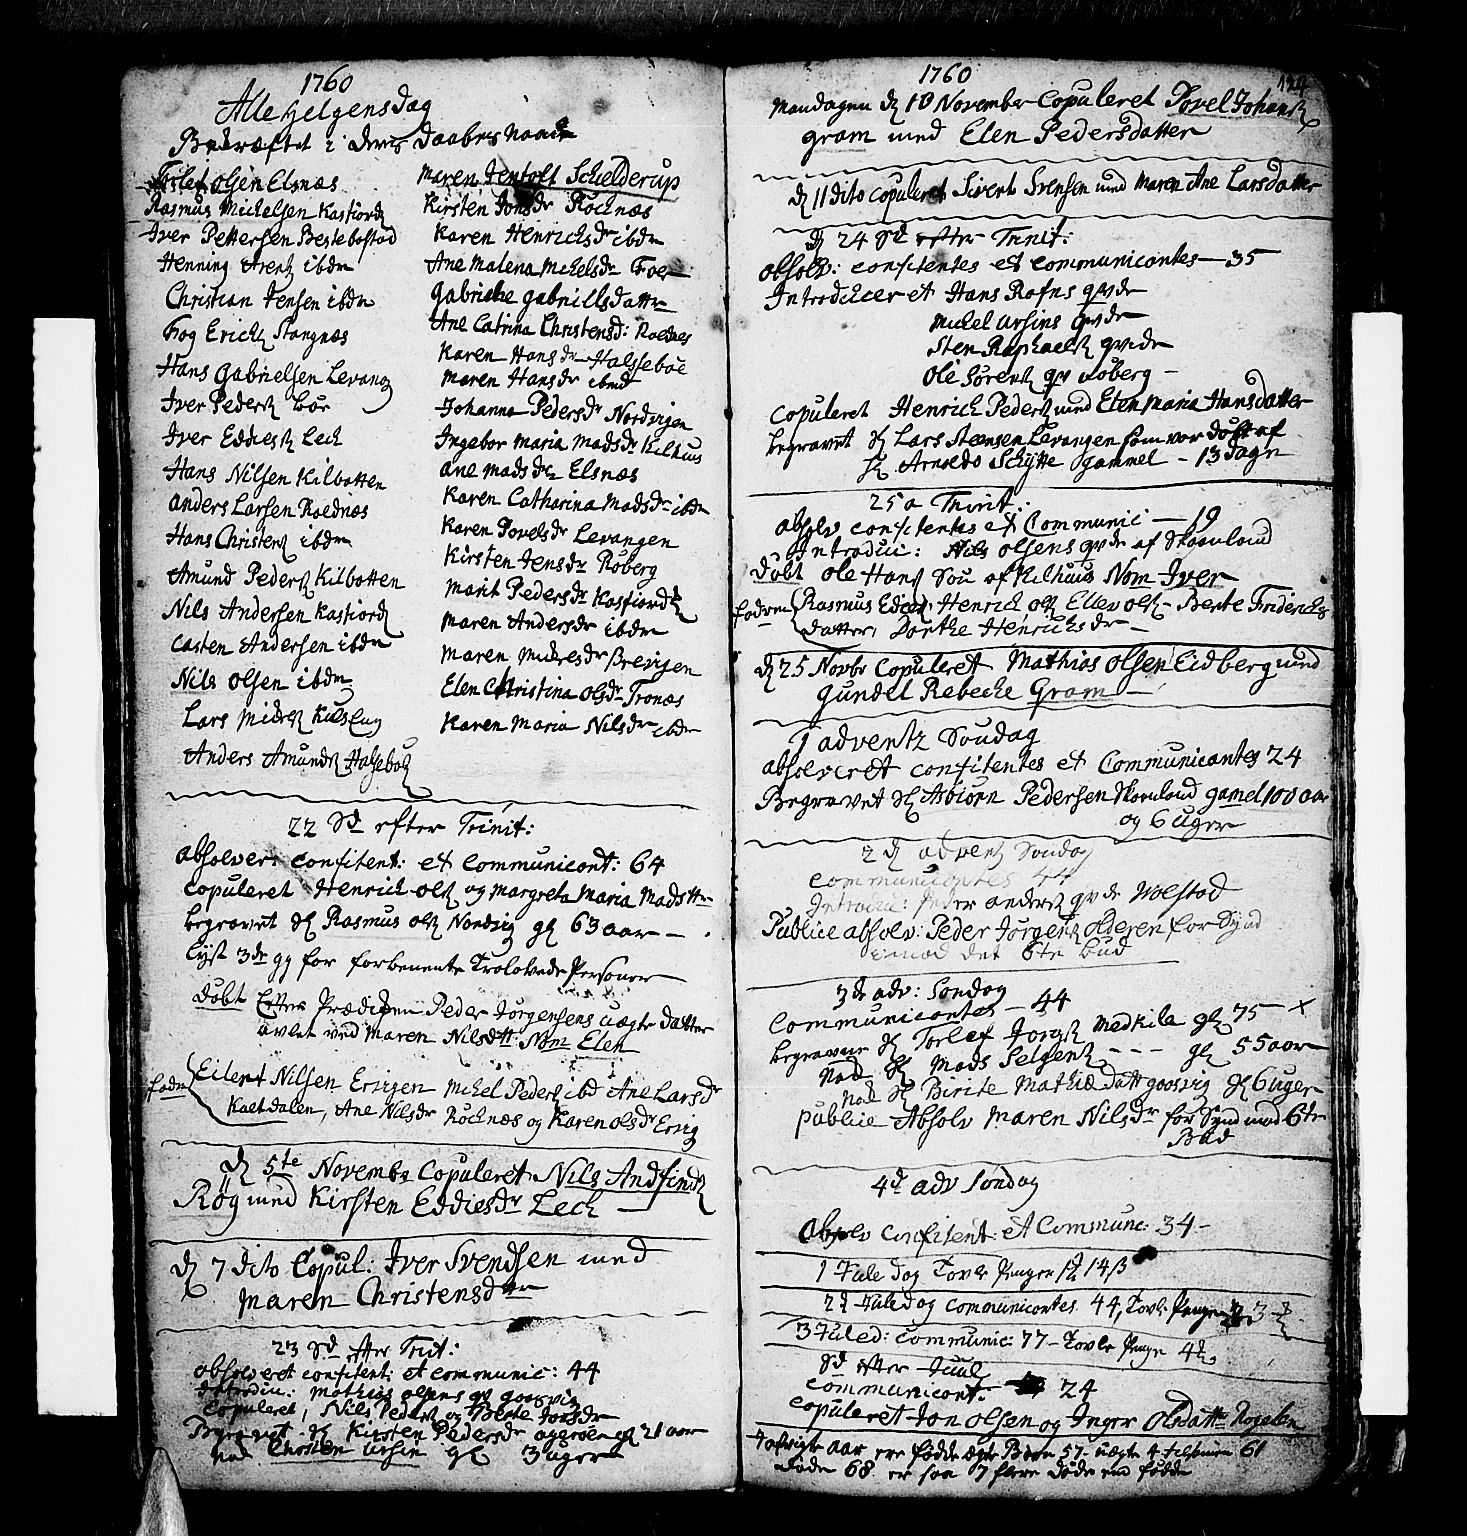 1760
Alle Helgens dag
Bedræftet i deres Daabes Naade
Olsen Elsnæs
Rasmus Michelsen Kasfiord
Iver Pettersen Bestebostad
Henning ibdm
Christian Jensen ibdm
Erichs Stangnæs
Hans Gabrielsen Levang
Iver Peders Bør
Iver Eddies Lech
Hans Nilsen Kilbotten
Anders Larsen Roednæs
Hans Christens ibdm
Amund Peders Kilbotten
Nils Andersen Kasfiord
Casten Andersen ibdm
Nils Olsen ibdm
Lars
Anders Amunds Halsebø
Maren Jentoft Schielderup
Kirsten Jonsdr Rochnæs
Karen Henrichsdr ibdm
Ane Malena Michelsdr
Gabriche Gabrillsdatter
Ane Catrina Christensd: Roednes
Karen Hansdr Halssebøe
Maren Hansdr ibmd
Johanna Pedersdr Nordvigen
Ingebor Maria Madsdr Kilhuus
Ane Madsdr Elsnæs
Karen Catharina Madsdr ibdm
Karen Povelsdr Levangen
Kirsten Jensdr Røberg
Marit Pedersdr Kasfiord
Maren Andersdr ibdm
Maren Brevigen
Elen Christina Olsdr Tronæs
Karen Maria Nilsdr ibdm
22 Sd efter Trinit:
absolver: confitent: et communicant: 64
copuleret Henrich Ols og Margreta Maria Madsttr
begravet Rasmus Ols Nordvig gl 63 aar
lyst 3de gg for forbenente Trolovede Personer
døbt Efter Prædiken Peder Jørgensens uægte datter
avlet ved Maren Nilsdtt: Nom Elen
fadr Eilert Nilsen Ervigen Michel Peders ibd Ane Larsdr
Kaltdalen, Ane Nilsdr Rochnæs og Karen Olsdr Ervig
d 5te Novembr Copuleret Nils Andfinds
Røg med Kirsten Eddiesdr Lech
d 7 dito Copul: Iver Svendsen med
Maren Christensdtr
23 Sd efter Trit:
absolveret confitent: et communic: 44
Introduc: Mathias Olsens qv goosvig
Copuleret, Nils Peders og Berte Jonsdr
Begravet Kirsten Pedersdr gl 21 aar
nod Chosten gl 3 uger
1760
124
Mandagen d 10 November Copuleret Povel Johans
Gram med Elen Pedersdatter
d 11 dito copuleret Sivert Svensen med Maren Ane Larsdatter
d 24 Sd efter Trinit:
absolv: confitentes et communicantes 35
Introduceret Hans Rafns qvde
Michel Ursins qvde
Sten Raphaels qvde
Ole Sørens qv Roberg
Copuleret Henrich Peders med Elen Maria Hansdatter
begravet Lars Steensen Levangen som var døbt af
Hr Arnoldo Schytte gammel - 13 dage
25 a Thrinit:
absolv confitentes et Communic - 19
Introduc: Nils Olsens qvde af Skoenland
Døbt Ole Hans Søn af Kilhuus Nom Iver
fadrene Rasmus Edies, Henrich Ols Ellev Ols - Berte Fridrichs
datter, Dorthe Henrichsdr
d 25 Novbr Copuleret Mathias Olsen Eidberg med
Gundel Rebecke Gram
1 adventz Søndag
absolveret confitentes et Communicantes 24
Begravet Asbiørn Pedersen Skoenland gamel 100 aar
og 6 uger
2 d advent Søndag
communicantes 44
Introduc: Peder Anders qvde Wolstad
Publice absolv: Peder Jørgens Olderen for Synd
imod det 6te bud
3de adv: Søndag
Communicantes - 44
begraven Torlef Jorgs Medkila gl 75 - x
Nod Mads Selgens - - - gl 55 aar
Nod Birite Mathiædatt goosvig gl 6 uger
publice Absolv Maren Nilsdr for Synd mod 6te
Bud
4d adv Søndag
Absolv confitent: et Commune: 34
1 Jule dag Tavle Penger 14ß
2d Juledag communicantes 44, Tavle Penge 3
3 Juled: Communic: 77 - Tavle Penge 4
Sd efter Juul
communicant: 24
copuleret Jon Olsen og Inger Olsdatter Rogelen
I afvigte aar ere fødde ægte Børn 57. uægte 4 tilsamen 61
døde 68 er saa 7 flere døde end fødde